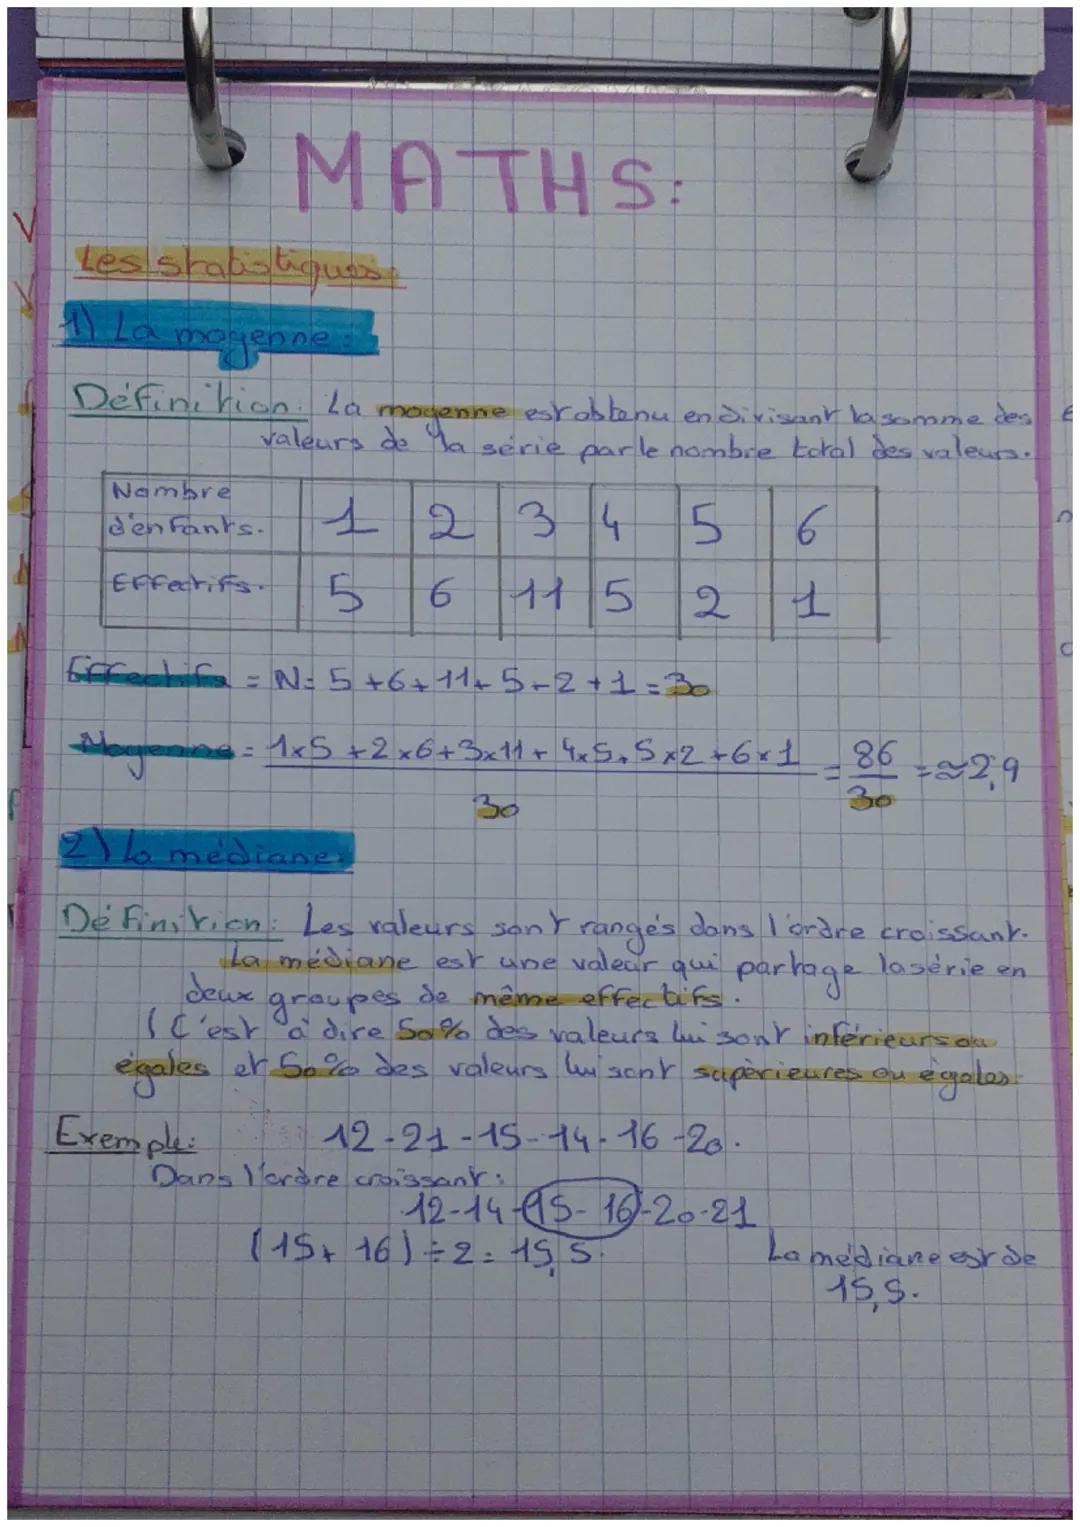 MATHS:
Les statistiques:
1) La moyenne:
Définition: La moyenne est obtenu en divisant la somme des
valeurs de la série par le nombre total des valeurs.
Nombre d'enfants. 1 2 3 4 5 6
Effectifs. 5 6 11 5 2 1
Effectifs = N= 5+6+11+5+2+1=30
Moyenne = 1x5+2x6+3x11+4x5+5x2+6x1 = 86 = ≈2,9
30 30
2) La médiane:
Définition: Les valeurs sont rangés dans l'ordre croissant.
La médiane est une valeur qui partage la série en
deux groupes de même effectifs.
(C'est à dire 50% des valeurs lui sont inférieurs ou
égales et 50% des valeurs lui sont supèrieures ou égales.
Exemple: 12-21-15-14-16-20.
Dans l'ordre croissant:
12-14-15-16-20-21
(15+16)÷2=15,5. La médiane est de
15,5.